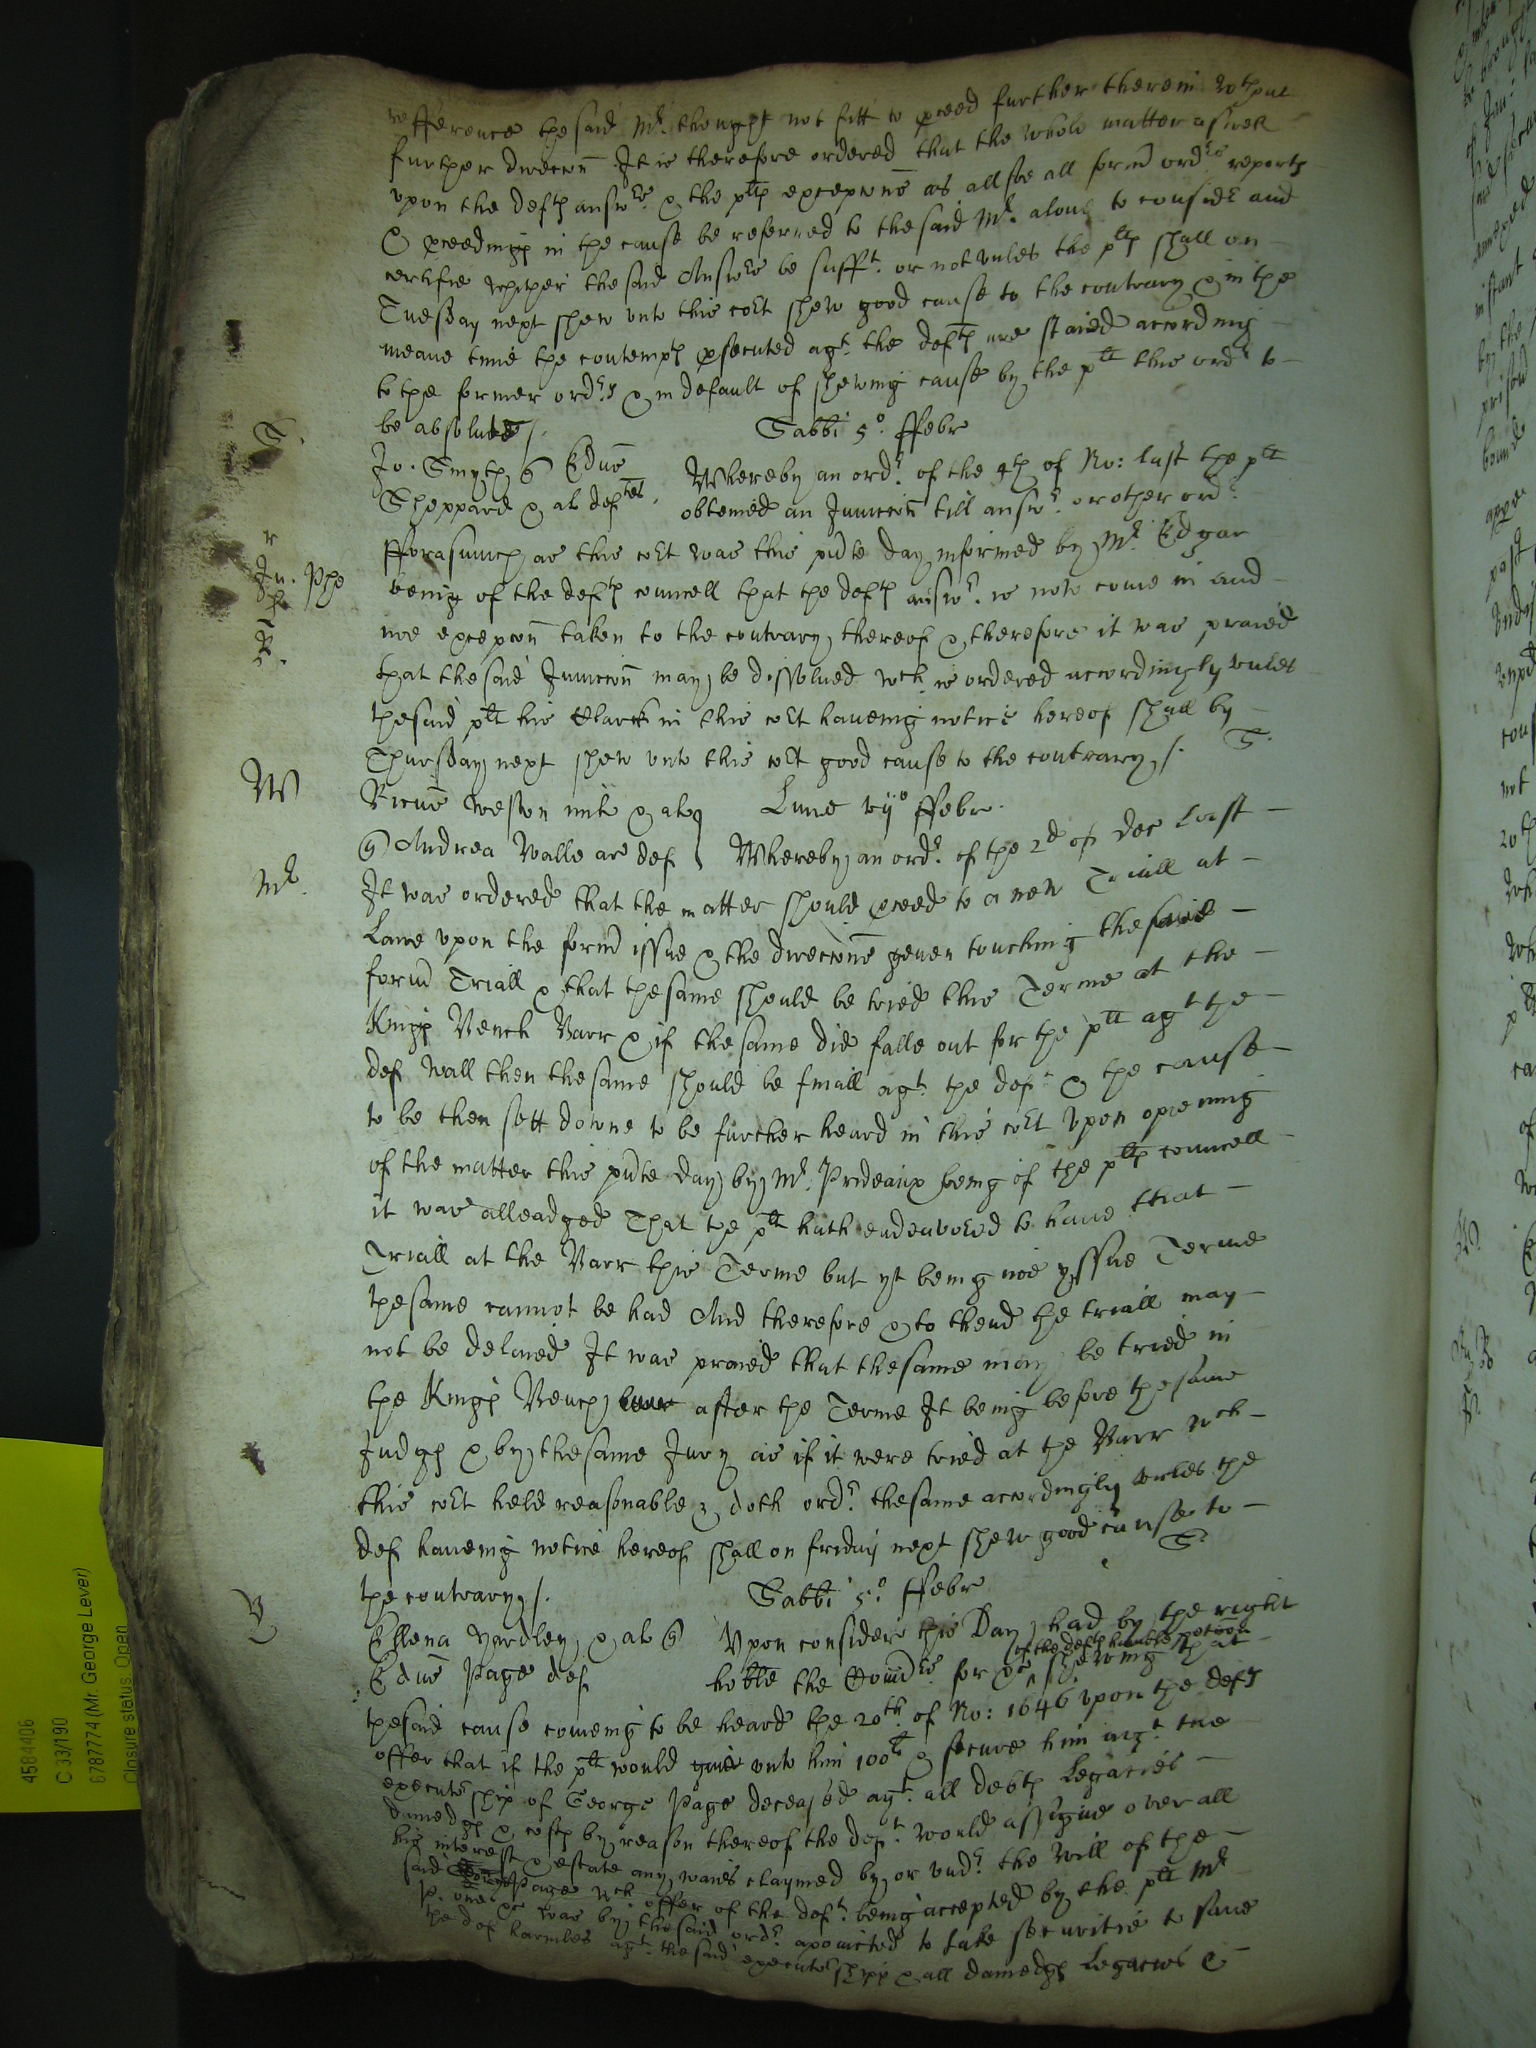 refference the said Mr. thought not fitt to pceed further therein wthout
further direccon It is therefore ordered that the whole matter aswell
upon the defts answers & the plts excepcons as allsoe all form ordrs reports
& pceedings in the cause be referred to the said Mr. alone to considr and
certifie whether the said Answers be sufft. or not unles the plts shall on
Tuesday next shew unto this cort good cause to the contrary & in the
meane time the contempts psecuted agt. the defts are staied according
to the former ordrs & in default of shewing cause by the plt this ordr to
be absolute /.
Sabbi 5o. ffebr
S.
Jo. Smyth q Edwd
Whereby an ordr. of the 4th of No: last the plt
Sheppard & al deftes.
obteined an Iunccon till answr. or other ordr.
fforasmuch as this cort was this pnte day informed by Mr. Edgar
r
being of the defts councell that the defts answr. is now come in and
noe excepcon taken to the contrary thereof & therefore it was praied
R.
that the said Iunccon may be dissolved wch is ordered accordingly unles
the said plt his Clarck in this cort haveing notice hereof shall by
Thursday next shew unto this cort good cause to the contrary /. S.
W
Ricus Weston milt & al q
Lune vijo ffebr.
q Andrea Walle ar def
Whereby an ordr. of the 2d of Dec last
Mr.
It was ordered that the matter should pceed to a new Triall at
Lawe upon the form issue & the direccons geven touching the said
form Triall & that the same should be tried this Terme at the
Kings Bench Barr & if the same did falle out for the plt agt the
def Wall then the same should be finall agt. the deft & the cause
to be then sett downe to be further heard in this cort Upon opening
of the matter this pnte day by Mr. Prideaux being of the plts councell
it was alleadged That the plt hath endeavored to have that
Triall at the Barr this Terme but yt being noe yssue Terme
the same cannot be had And therefore & to thend the triall may
not be delaied It was praied that the same may be tried in
the Kings Bench after the Terme It being before the same
Judgs & by the same Jury as if it were tried at the Barr wch
this cort held reasonable & doth ordr. the same accordingly unles the
def haveing notice hereof shall on friday next shew good cause to
the contrary /.
S.
Sabbi 5o. ffebr
Y
Ellena Yardley & al q
Upon consider this Day had by the right
Edwd Page def
hoble the Comdrs for &c of the defts humble peticon shewing that
the said cause comeing to be heard the 20th of No: 1646 upon the defts
offer that if the plt would give unto him 100l & secure him agt. the
executorshipp of George Page deceased agt. all debts Legacies
damedgs & costs by reason thereof the deft. would assigne over all
his interest & estate any waies claymed by or undr. the Will of the
said Page wch offer of the deft. being accepted by the plt Mr
P. one &c was by the said ordr. apointed to take securitie to save
the def harmles agt. the said executorshipp & all damedgs Legacies &
4584406
C 33/190
6787774 (Mr. George Lever)
Closure status: Open